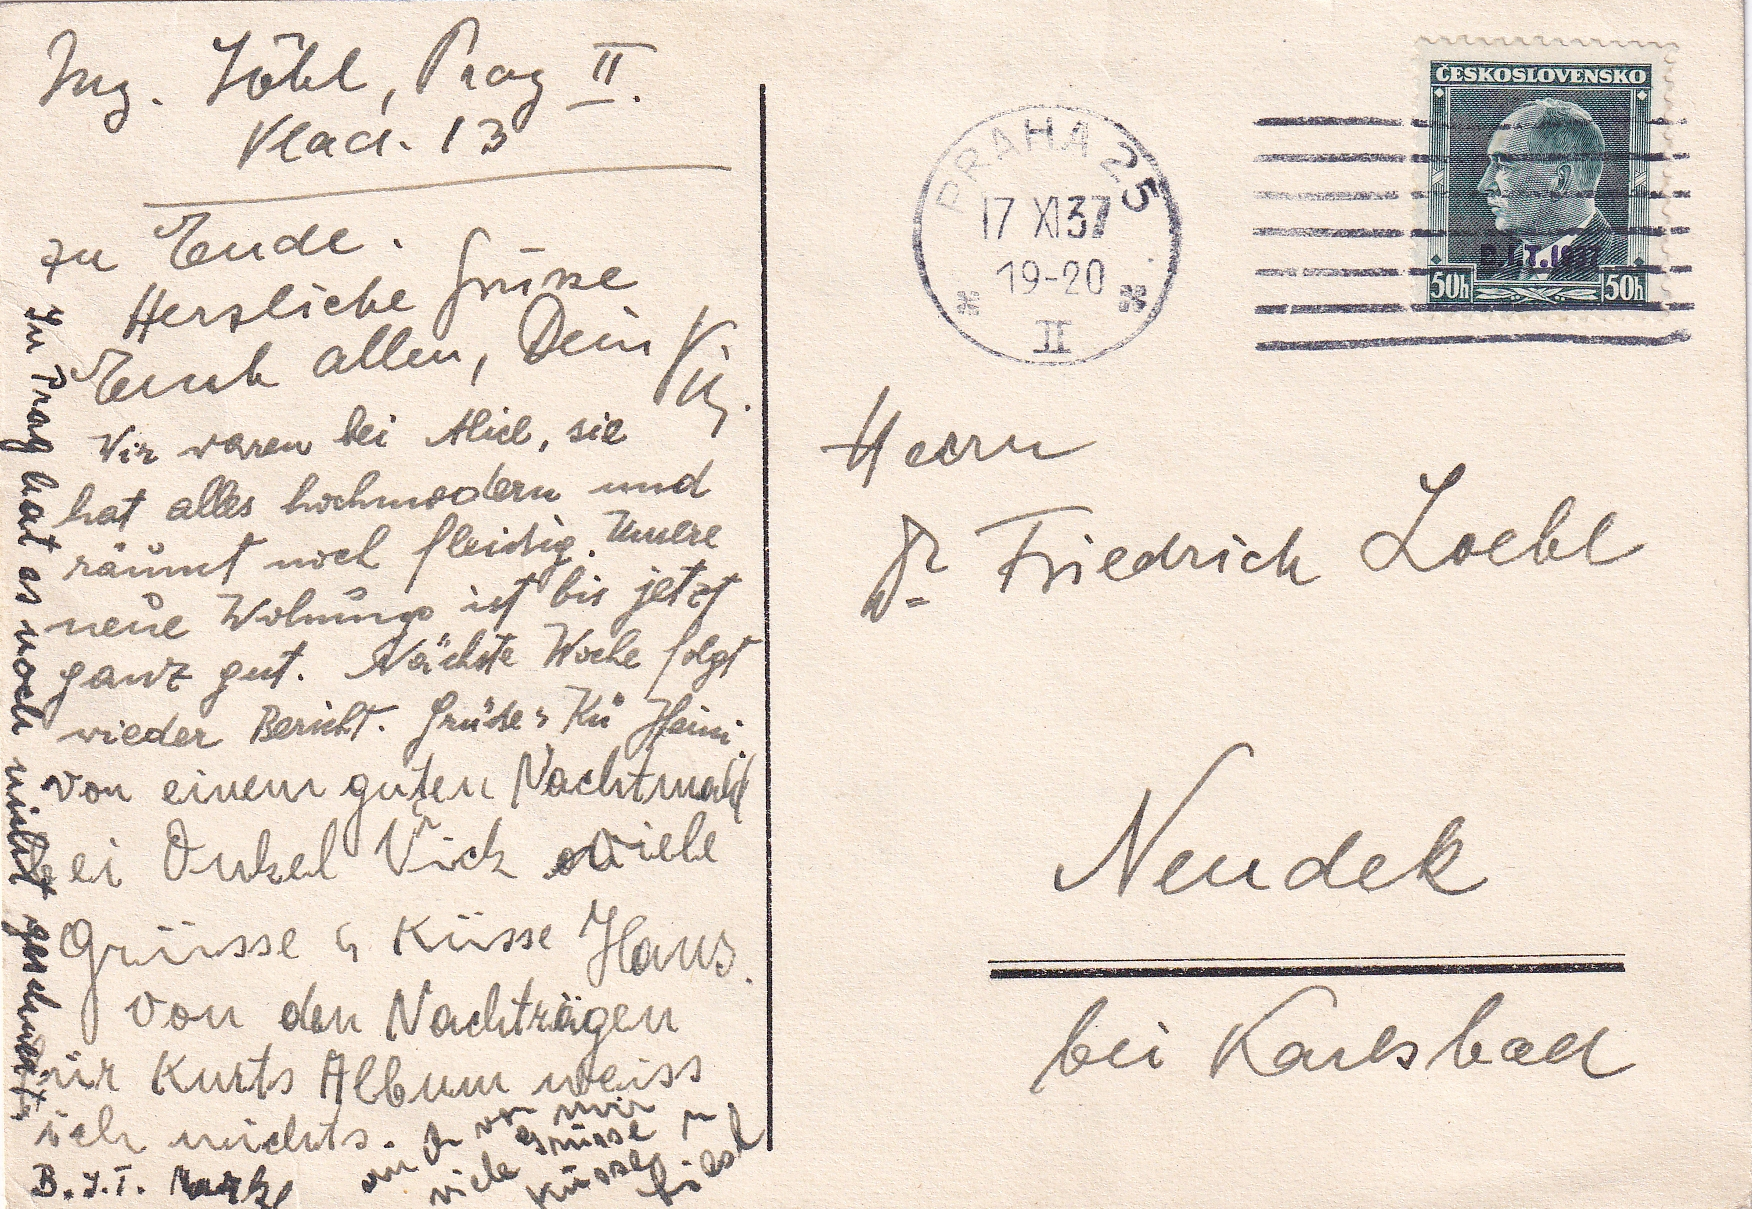 Ing. Löbl, Prag II.
Vlad. 13
zu Ende.
Herzliche Grüsse
Euch allen, Dein V
Wir waren bei Alice, sie
hat alles hochmodern und
räumt noch fleißig. Unsere
neue Wohnung ist bis jetzt
ganz gut. Nächste Woche folgt
wieder Bericht. Grüße & Kü Heini.
von einem guten Nachtmahl
bei Onkel Vick viele
Grüsse & Küsse Hans.
Von den Nachträgen
für Kurts Album weiss
ich nichts.
B.I.T. Marke
auch von mir
viele Grüsse u
Küsse
In Prag hat es noch nicht geschneit.
PRAHA 25
17 XI 37
19-20
II
ČESKOSLOVENSKO
B.I.T. 1937
50h 50h
Herrn
Dr Friedrich Loebl
Neudek
bei Karlsbad